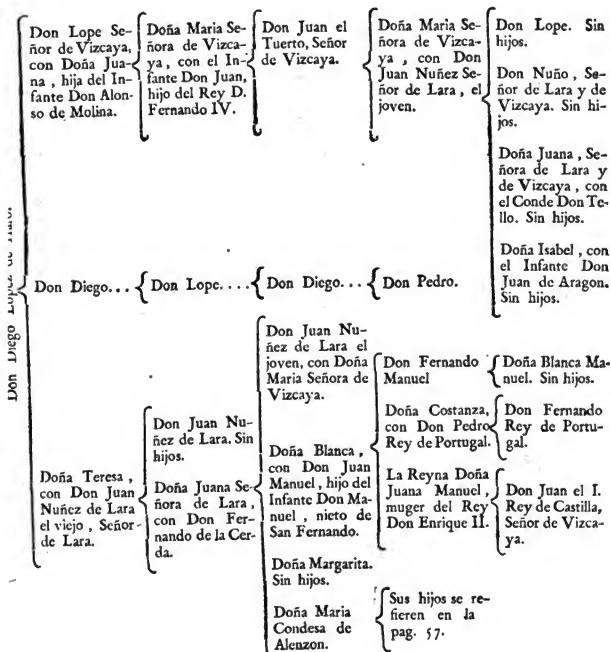 Don Diego Lopez de Haro.
Don Lope Se-
ñor de Vizcaya,
con Doña Jua-
na , hija del In-
fante Don Alon-
so de Molina.
Doña Maria Se-
ñora de Vizca-
ya, con el In-
fante Don Juan,
hijo del Rey D.
Fernando IV.
Don Juan el
Tuerto, Señor
de Vizcaya.
Doña Maria Se-
ñora de Vizca-
ya , con Don
Juan Nuñez Se-
ñor de Lara , el
joven.
Don Lope. Sin
hijos.
Don Nuño , Se-
ñor de Lara y de
Vizcaya. Sin hi-
jos.
Doña Juana , Se-
ñora de Lara y
de Vizcaya , con
el Conde Don Te-
llo. Sin hijos.
Doña Isabel , con
el Infante Don
Juan de Aragon.
Sin hijos.
Don Diego...
Don Lope....
Don Diego...
Don Pedro.
Doña Teresa ,
con Don Juan
Nuñez de Lara
el viejo , Señor
de Lara.
Don Juan Nu-
ñez de Lara. Sin
hijos.
Doña Juana Se-
ñora de Lara ,
con Don Fer-
nando de la Cer-
da.
Don Juan Nu-
ñez de Lara el
joven, con Doña
Maria Señora de
Vizcaya.
Doña Blanca ,
con Don Juan
Manuel , hijo del
Infante Don Ma-
nuel , nieto de
San Fernando.
Doña Margarita.
Sin hijos.
Doña Maria
Condesa de
Alenzon.
Don Fernando
Manuel
Doña Costanza,
con Don Pedro
Rey de Portugal.
La Reyna Doña
Juana Manuel ,
muger del Rey
Don Enrique II.
Sus hijos se re-
fieren en la
pag. 57.
Doña Blanca Ma-
nuel. Sin hijos.
Don Fernando
Rey de Portu-
gal.
Don Juan el I.
Rey de Castilla,
Señor de Vizca-
ya.